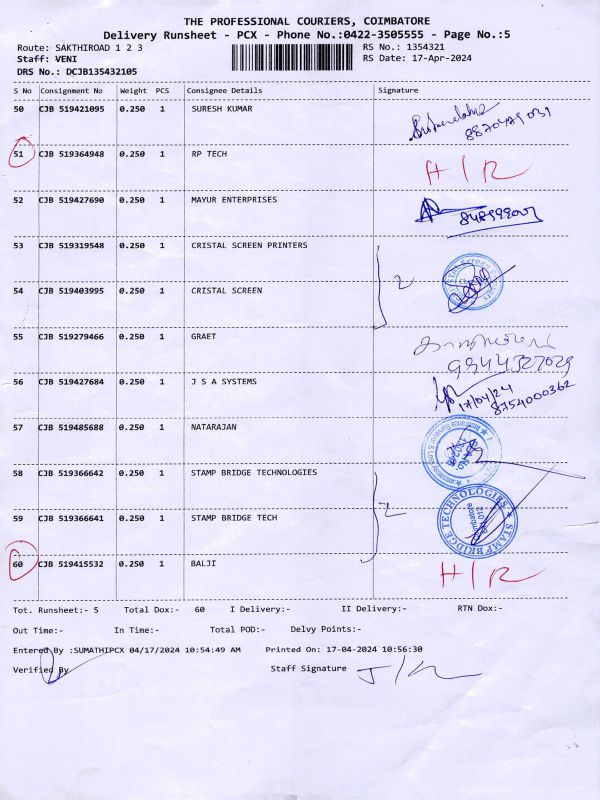 THE PROFESSIONAL COURIERS, COIMBATORE
Delivery Runsheet - PCX - Phone No.:0422-3505555 - Page No.:5
Route: SAKTHIROAD 1 2 3 RS No.: 1354321
Staff: VENI RS Date: 17-Apr-2024
DRS No.: DCJB135432105
S No Consignment No Weight PCS Consignee Details Signature
50 CJB 519421095 0.250 1 SURESH KUMAR
51 CJB 519364948 0.250 1 RP TECH H/R
52 CJB 519427690 0.250 1 MAYUR ENTERPRISES
53 CJB 519319548 0.250 1 CRISTAL SCREEN PRINTERS
2
54 CJB 519403995 0.250 1 CRISTAL SCREEN
55 CJB 519279466 0.250 1 GRAET
9344327029
56 CJB 519427684 0.250 1 J S A SYSTEMS
17/04/24
8754000362
57 CJB 519485688 0.250 1 NATARAJAN
58 CJB 519366642 0.250 1 STAMP BRIDGE TECHNOLOGIES
2
59 CJB 519366641 0.250 1 STAMP BRIDGE TECH
STAMP BRIDGE TECHNOLOGIES
60 CJB 519415532 0.250 1 BALJI H/R
Tot. Runsheet:- 5 Total Dox:- 60 I Delivery:- II Delivery:- RTN Dox:-
Out Time:- In Time:- Total POD:- Delvy Points:-
Entered By :SUMATHIPCX 04/17/2024 10:54:49 AM Printed On: 17-04-2024 10:56:30
Verified By Staff Signature